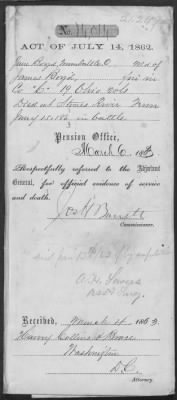 No. 14,014
ACT OF JULY 14, 1862.
Jane Boyd, O wid of
James Boyd, Priv in
Co "C" 19 Ohio Vols
Died at Stones River Tenn
Jany in battle
Pension Office,
March 6 1863.
Respectfully referred to the Adjutant
General, for official evidence of service
and death.
Jos H Barrett
Commissioner.
Received, March 4 1863
Harvey Collins & Brace
Washington
D.C.
Attorney.